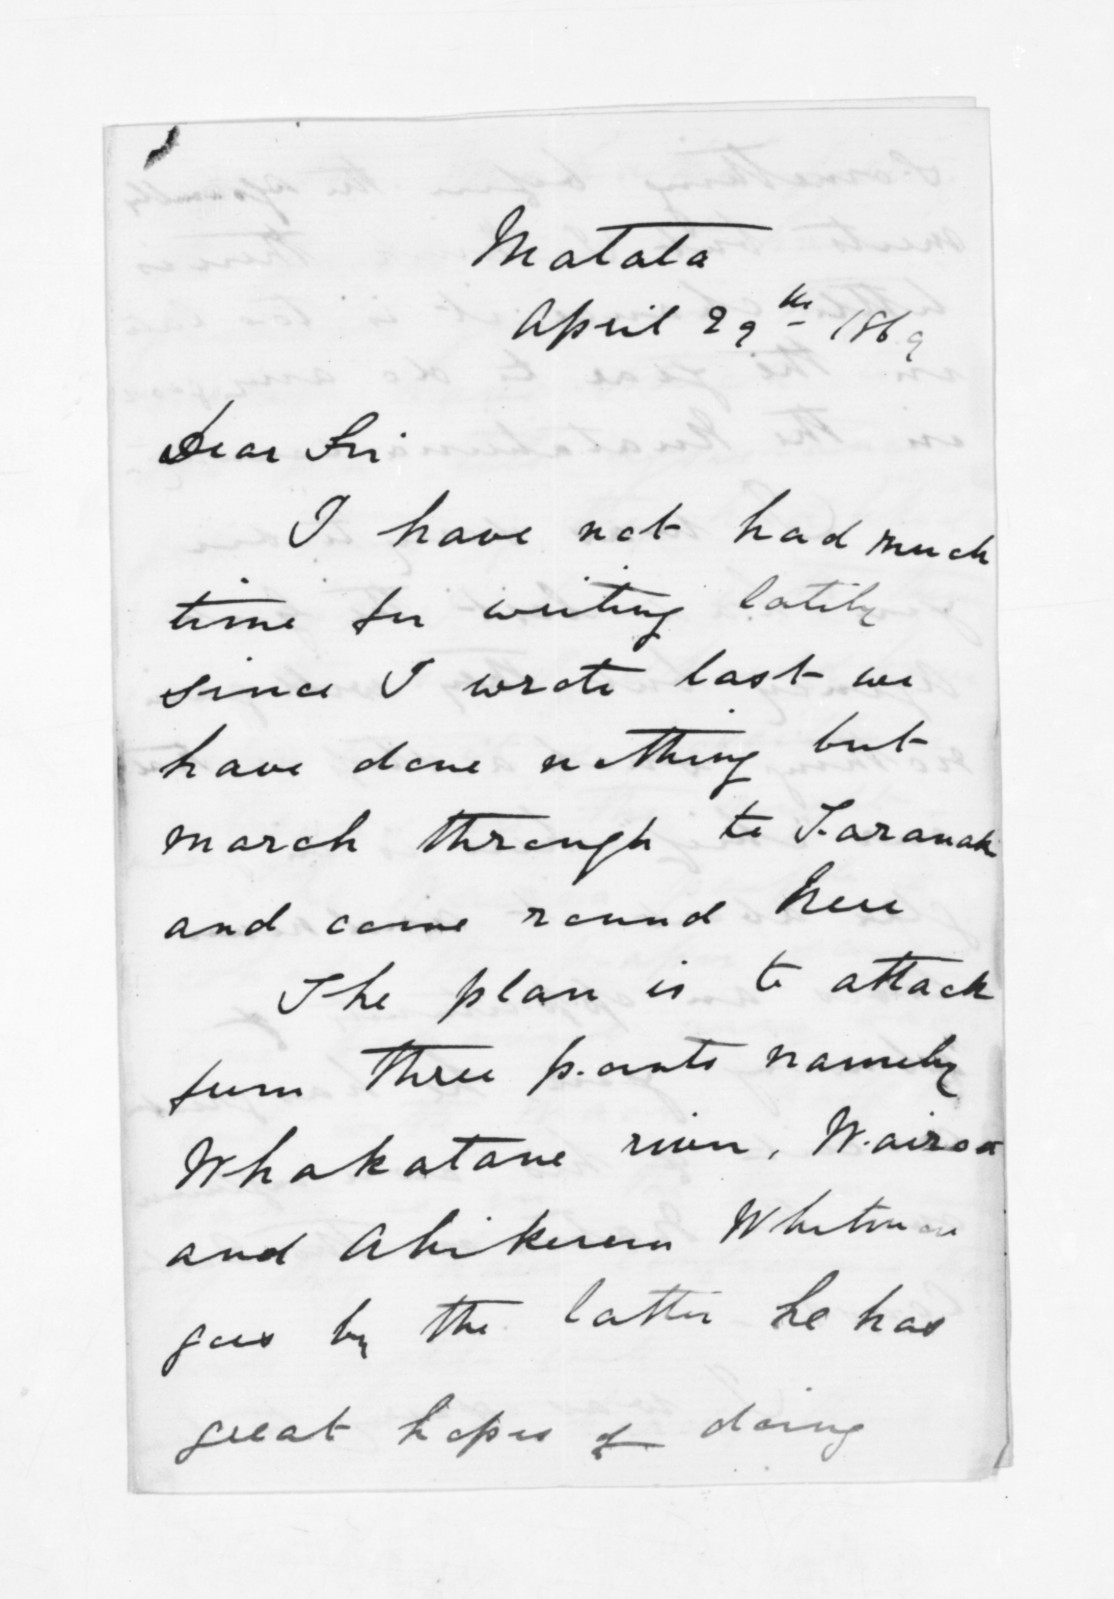 Matata
April 29th 1869
Dear Sir
I have not had much
time for writing lately
since I wrote last we
have done nothing but
march through to Taranaki
and come round here
The plan is to attack
from three points namely
Whakatane river, Wairoa
and Ahikereru Whitmore
goes by the latter he has
great hopes of doing